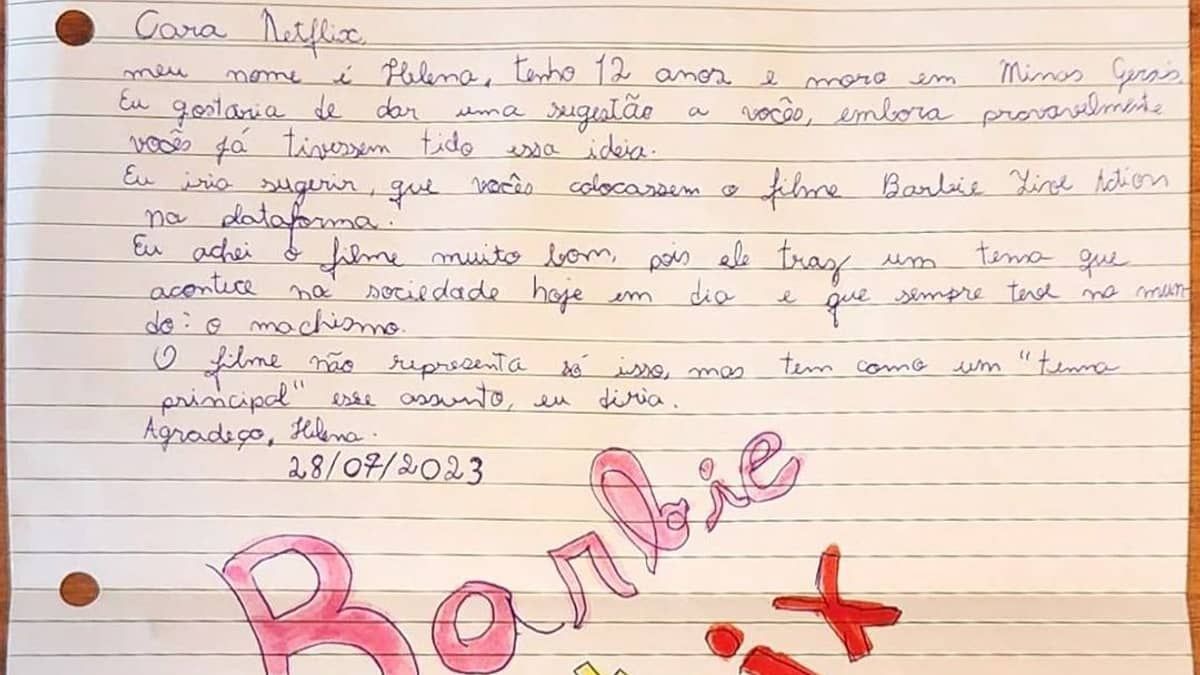 Cara Netflix,
meu nome é Helena, tenho 12 anos e moro em Minas Gerais.
Eu gostaria de dar uma sugestão a vocês, embora provavelmente
vocês já tivessem tido essa ideia.
Eu iria sugerir, que vocês colocassem o filme Barbie Live Action
na plataforma.
Eu achei o filme muito bom, pois ele traz um tema que
acontece na sociedade hoje em dia e que sempre teve no mun-
do: o machismo.
O filme não representa só isso, mas tem como um "tema
principal" esse assunto, eu diria.
Agradeço, Helena.
28/07/2023
Barbie
ix